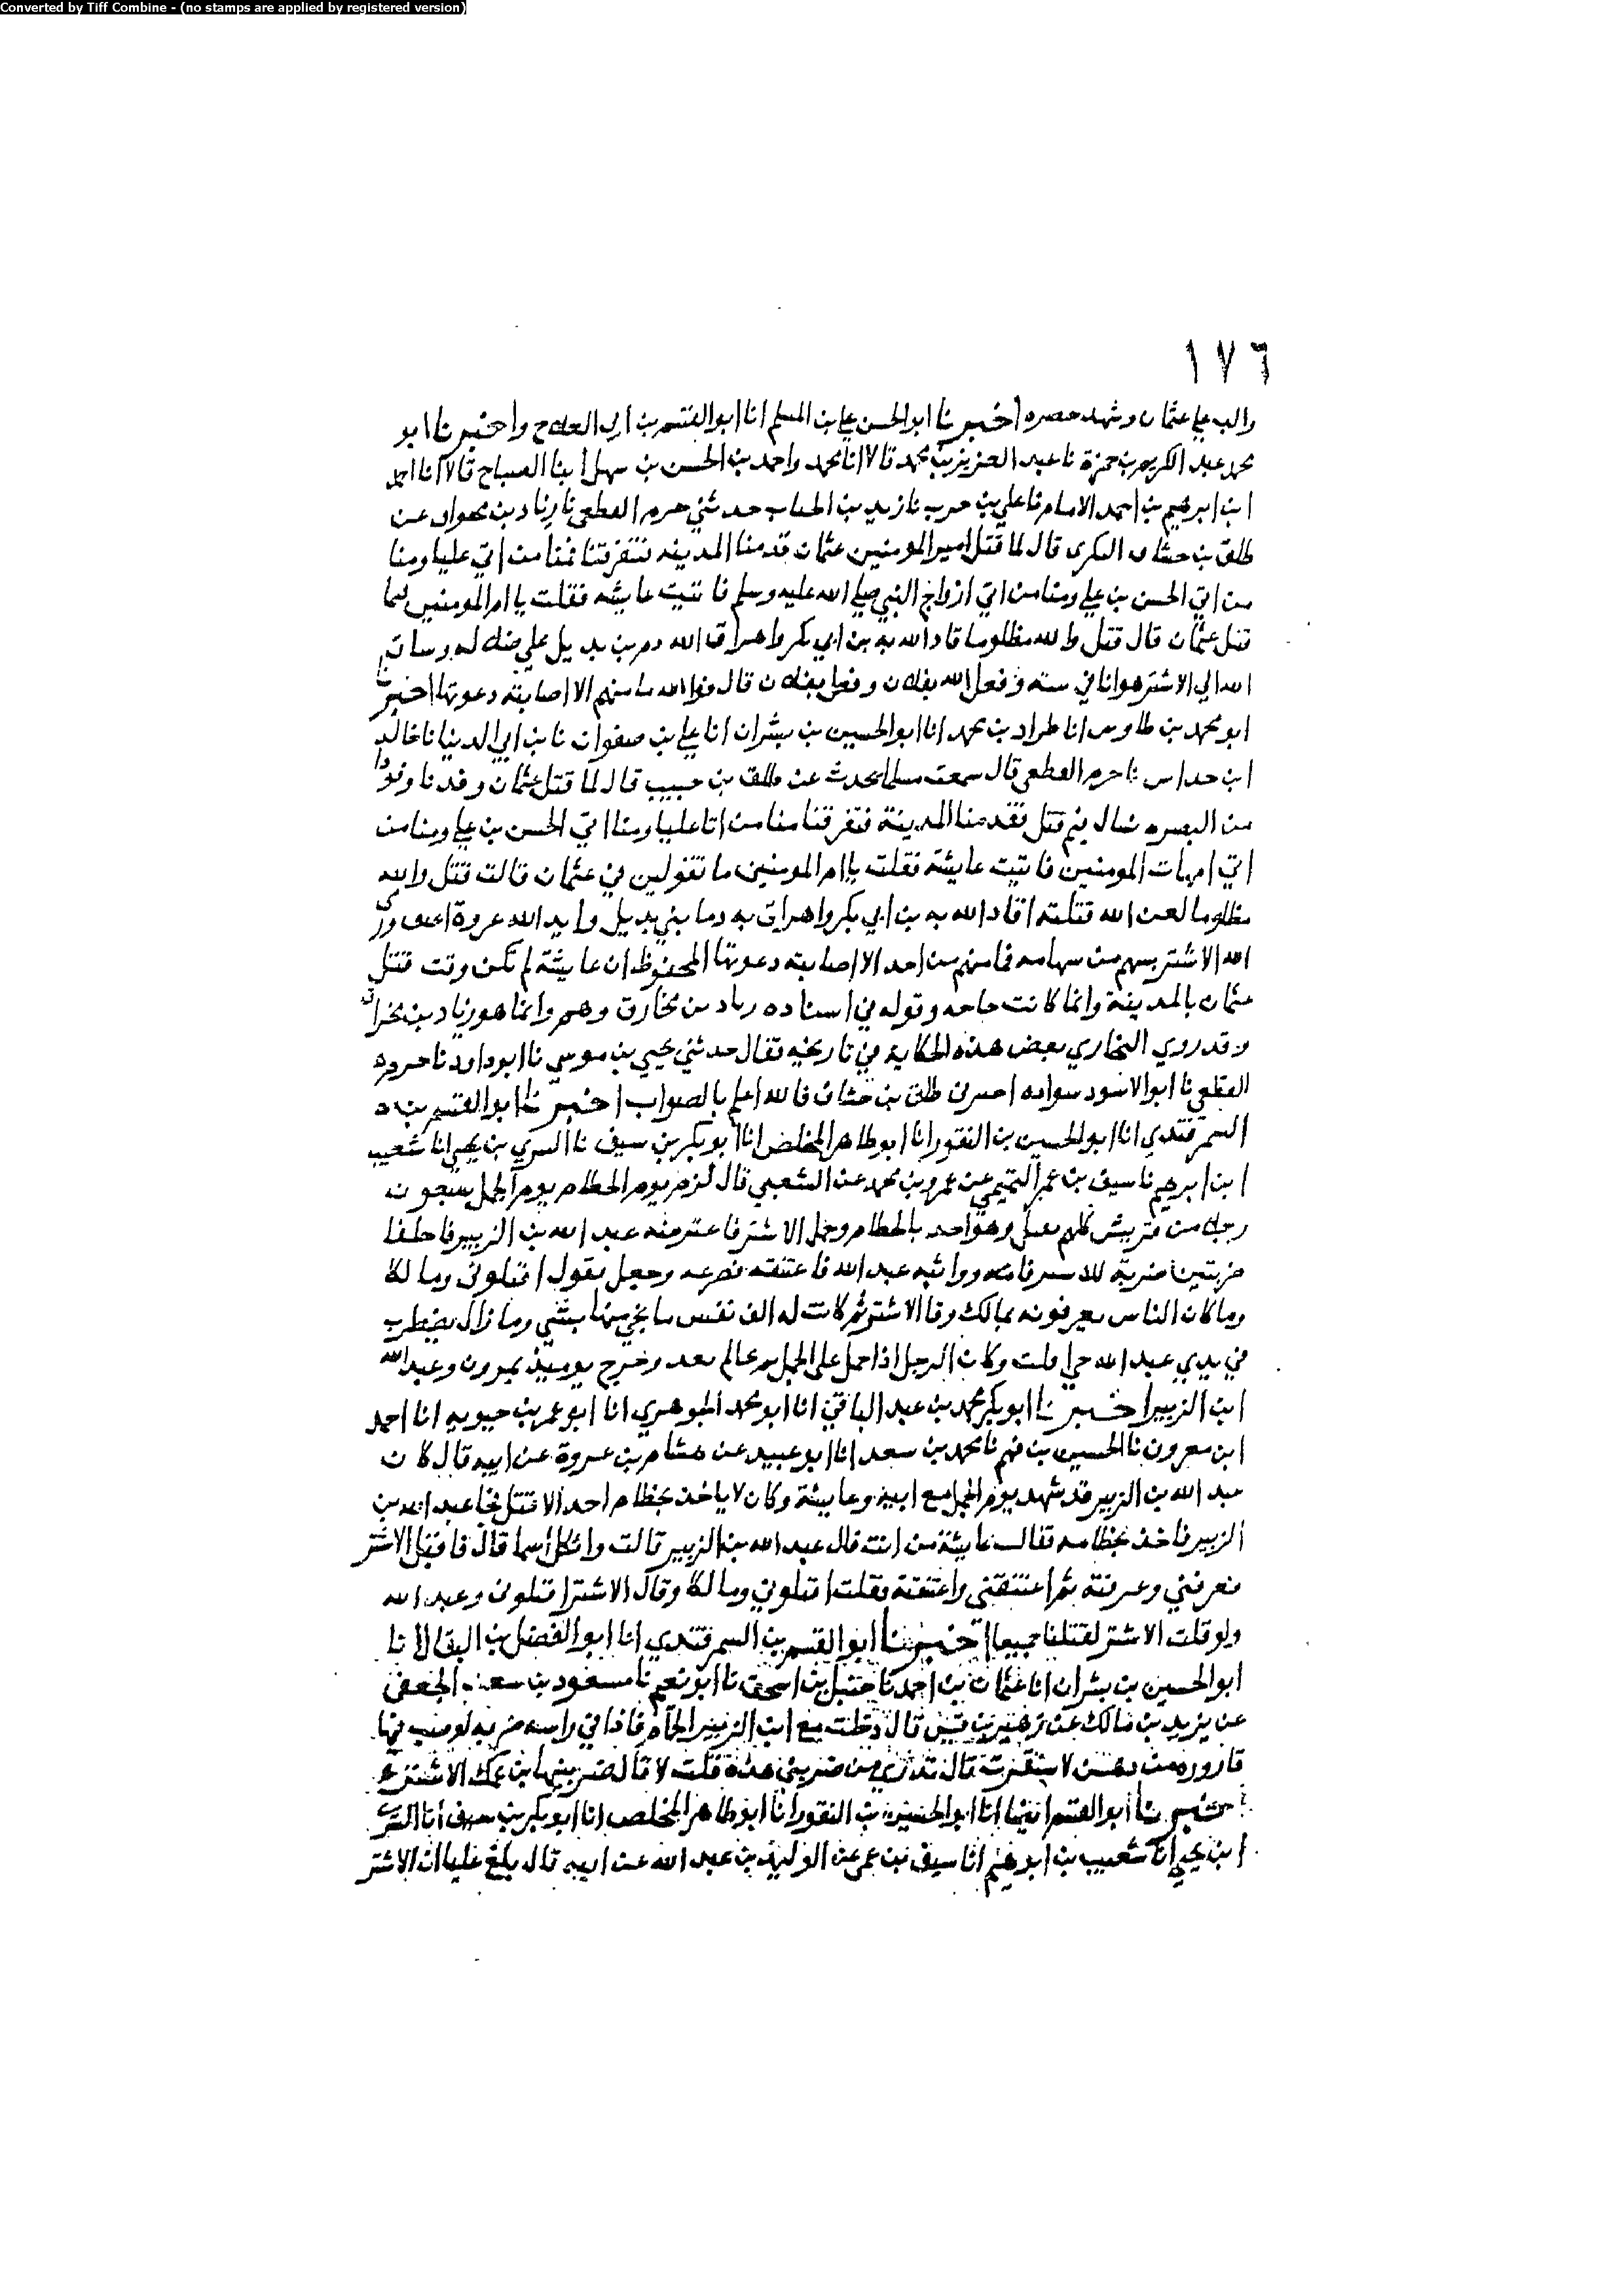 Converted by Tiff Combine - (no stamps are applied by registered version)
١٧٦
والب علي عثمان وشهد حصره اخبرنا ابو الحسن علي بن المسلم انا ابو القسم بن ابي العلاح واخبرنا ابو
محمد عبد الكريم بن حمزة نا عبد العزيز بن محمد قالا انا محمد واحمد بن الحسن بن سهل ابنا الصباح قالا انا احمد
ابن ابرهيم بن احمد الامام نا علي بن حرب نا زيد بن الحباب حدثني حرم القطعي نا زياد بن عن
طلق بن حشان البكرى قال لما قتل امير المومنين عثمان قدمنا المدينه فتفرقنا فمنا من اتي عليا ومنا
من اتي الحسن بن علي ومنا من اتي ازواج النبي صلي الله عليه وسلم فاتيت عايشه فقلت يا ام المومنين فيما
قتل عثمان قال قتل والله مظلوما قاد الله به بن ابي بكر واهراق الله دم بن بديل علي ضلاله وساق
الله الي الاشتر هوانا في بيته وفعل الله بفلان وفعل بفلان قال فوالله ما منهم الا اصابته دعوتها اخبرنا
ابو محمد بن طاوس انا طراد بن محمد انا ابو الحسين بن بشران انا علي بن صفوان نا بن ابي الدنيا نا خالد
ابن خداس نا حرم القطعي قال سمعت مسلما يحدث عن طلق بن حبيب قال لما قتل عثمان وفدنا وفودا
من البصره نسال فيم قتل فقدمنا المدينة فتفرقنا منا من اتا عليا ومنا اتي الحسن بن علي ومنا من
اتي امهات المومنين فاتيت عايشة فقلت يا ام المومنين ما تقولين في عثمان قالت قتل والله
مظلوما لعن الله قتلته اقاد الله به بن ابي بكر واهراق به دما بني بديل وابد الله عروة ورمى
الله الاشتر بسهم من سهامه فما منهم من احد الا اصابته دعوتها المحفوظ ان عايشة لم تكن وقت قتل
عثمان بالمدينة وانما كانت حاجه وقوله في اسناده زياد بن مخارق وهم وانما هو زياد بن مخراق
وقد روي البخاري بعض هذه الحكاية في تاريخه فقال حدثني يحيي بن موسي نا ابو داود نا حزم
القطعي نا ابو الاسود سواده اخبرني طلق بن خشان فالله اعلم بالصواب اخبرنا ابو القسم بن
السمرقندي انا ابو الحسين بن النقور انا ابو طاهر المخلص انا ابو بكر بن سيف نا السري بن يحيي انا شعيب
ابن ابرهيم نا سيف بن عمر التميمي عن عمرو بن محمد عن الشعبي قال لزم يوم الخطام يوم الجمل سبعون
رجلا من قريش كلهم يقتل وهو اخذ بالخطام وحمل الاشتر فاعترضه عبد الله بن الزبير فاختلفا
ضربتين ضربة للاشتر فامه وواثبه عبد الله فاعتنقه فصرعه وجعل يقول اقتلوني ومالكا
وما كان الناس يعرفونه بمالك وقال الاشتر ثم كانت له الف نفس ما نجي منها بشي وما زال يضطرب
في يدي عبد الله حتى افلت وكان الرجل اذا حمل على الجمل لم يعد وخرج يوميذ مرون وعبد الله
ابن الزبير اخبرنا ابو بكر محمد بن عبد الباقي انا ابو محمد الجوهري انا ابو عمر بن حيويه انا احمد
ابن معرون نا الحسين بن فهم نا محمد بن سعد انا ابو عبيد عن هشام بن عروة عن ابيه قال كان
عبد الله بن الزبير قد شهد يوم الجمل مع ابيه وعايشة وكان لا ياخذ بخطام احد الا قتل فجا عبد الله بن
الزبير فاخذ بخطامه فقالت عايشة من انت قال عبد الله بن الزبير قالت واثكل اسما قال فاقبل الاشتر
فعرفني وعرفته ثم اعتنقني واعتنقته فقلت اقتلوني ومالكا وقال الاشتر اقتلوني وعبد الله
ولو قلت الاشتر لقتلنا جميعا اخبرنا ابو القسم بن السمرقندي انا ابو الفضل بن البقال انا
ابو الحسين بن بشران انا عثمان بن احمد نا حنبل بن اسحق نا ابو نعيم نا مسعود بن سعد الجعفي
عن يزيد بن مالك عن زهير بن قيس قال دخلت مع ابن الزبير الحمام فاذا في راسه ضربه لو صب فيها
قاروره من دهن لاستقرت قال تدري من ضربني هذه قلت لا قال ضربنيها ابن عمك الاشتر
اخبرنا ابو القسم ايضا انا ابو الحسين بن النقور انا ابو طاهر المخلص انا ابو بكر بن سيف انا السري
ابن يحيي انا شعيب بن ابرهيم انا سيف بن عمر عن الوليد بن عبد الله عن ابيه قال بلغ عليا ان الاشتر